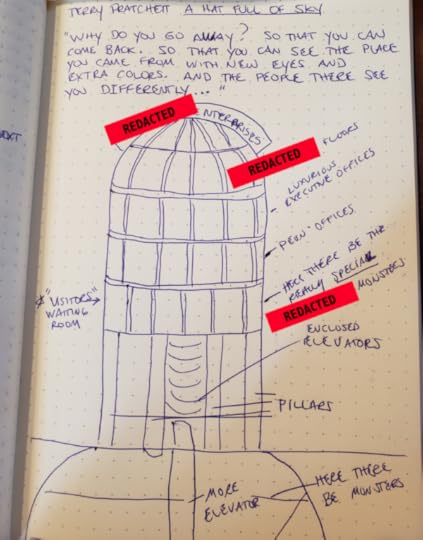 TERRY PRATCHETT A HAT FULL OF SKY
"WHY DO YOU GO AWAY? SO THAT YOU CAN
COME BACK. SO THAT YOU CAN SEE THE PLACE
YOU CAME FROM WITH NEW EYES AND
EXTRA COLORS. AND THE PEOPLE THERE SEE
YOU DIFFERENTLY..."
REDACTED
NTERPRISES
REDACTED FLOORS
LUXURIOUS
EXECUTIVE OFFICES
PEON-OFFICES
HERE THERE BE THE
REALLY SPECIAL
REDACTED MONSTERS
"VISITORS"
WAITING
ROOM
ENCLOSED
ELEVATORS
PILLARS
MORE
ELEVATOR
HERE THERE
BE MONSTERS